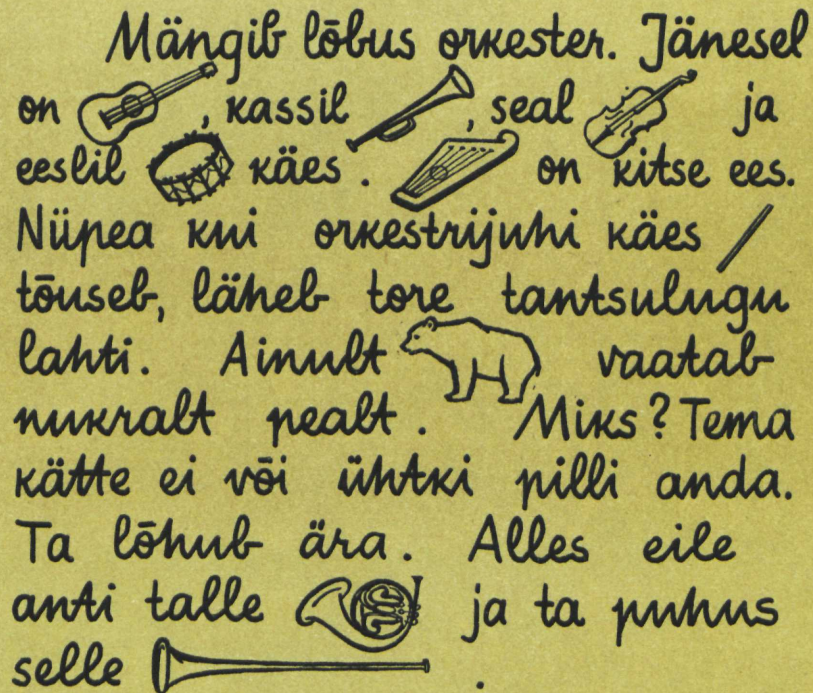 Mängib lõbus orkester. Jänesel
on , kassil , seal ja
eeslil käes. on kitse ees.
Niipea kui orkestrijuhi käes
tõuseb, läheb tore tantsulugu
lahti. Ainult vaatab
nukralt pealt. Miks? Tema
kätte ei või ühtki pilli anda.
Ta lõhub ära. Alles eile
anti talle ja ta puhus
selle .